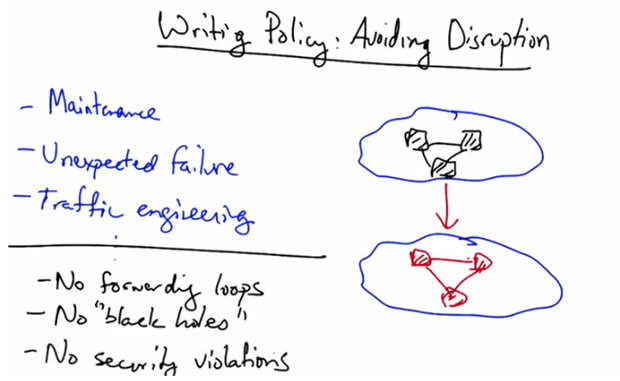 Writing Policy: Avoiding Disruption
- Maintenance
- Unexpected failure
- Traffic engineering
- No forwarding loops
- No "black holes"
- No security violations